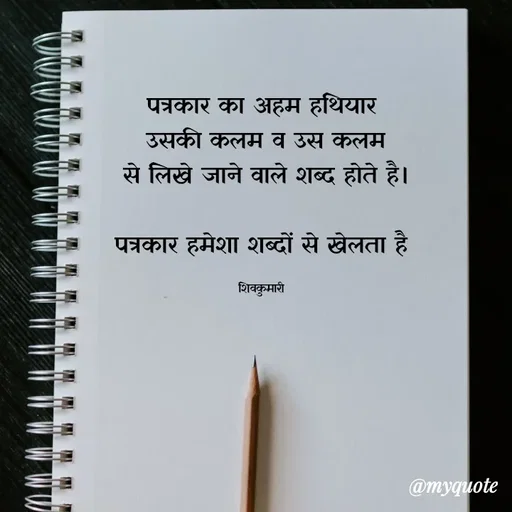 पत्रकार का अहम हथियार
उसकी कलम व उस कलम
से लिखे जाने वाले शब्द होते है।
पत्रकार हमेशा शब्दों से खेलता है
शिवकुमारी
@myquote